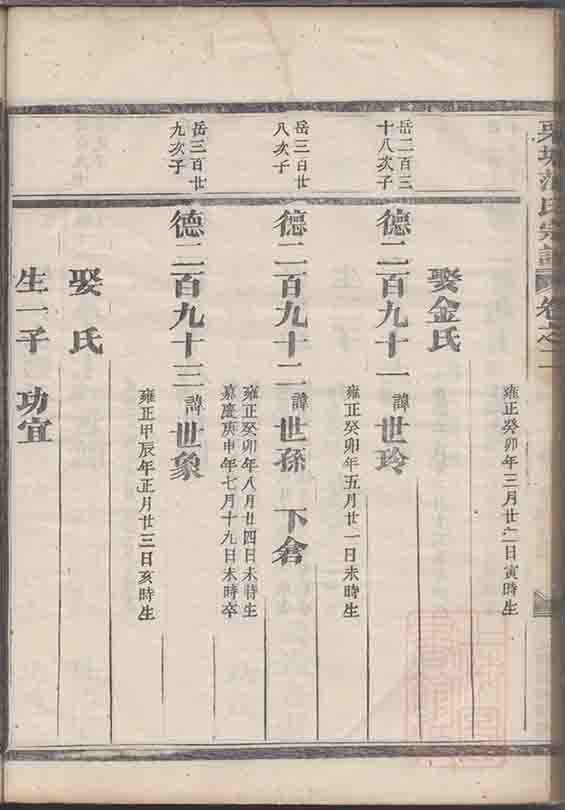 氏宗譜 卷之二
雍正癸卯年三月廿六日寅時生
娶金氏
岳二百三
十八次子
德二百九十一 諱世玲
雍正癸卯年五月廿一日未時生
岳三百廿
八次子
德二百九十二 諱世孫 下倉
雍正癸卯年八月廿四日未時生
嘉慶庚申年七月十九日未時卒
岳三百廿
九次子
德二百九十三 諱世象
雍正甲辰年正月廿三日亥時生
娶 氏
生一子 功宜